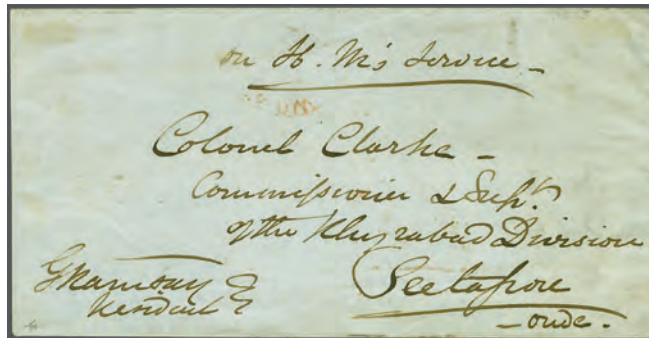 on H. M's Service -
Colonel Clarke -
Commissioner & Supt.
of the Khyrabad Division
Seetapore
- oude -
GRamsay
Resident